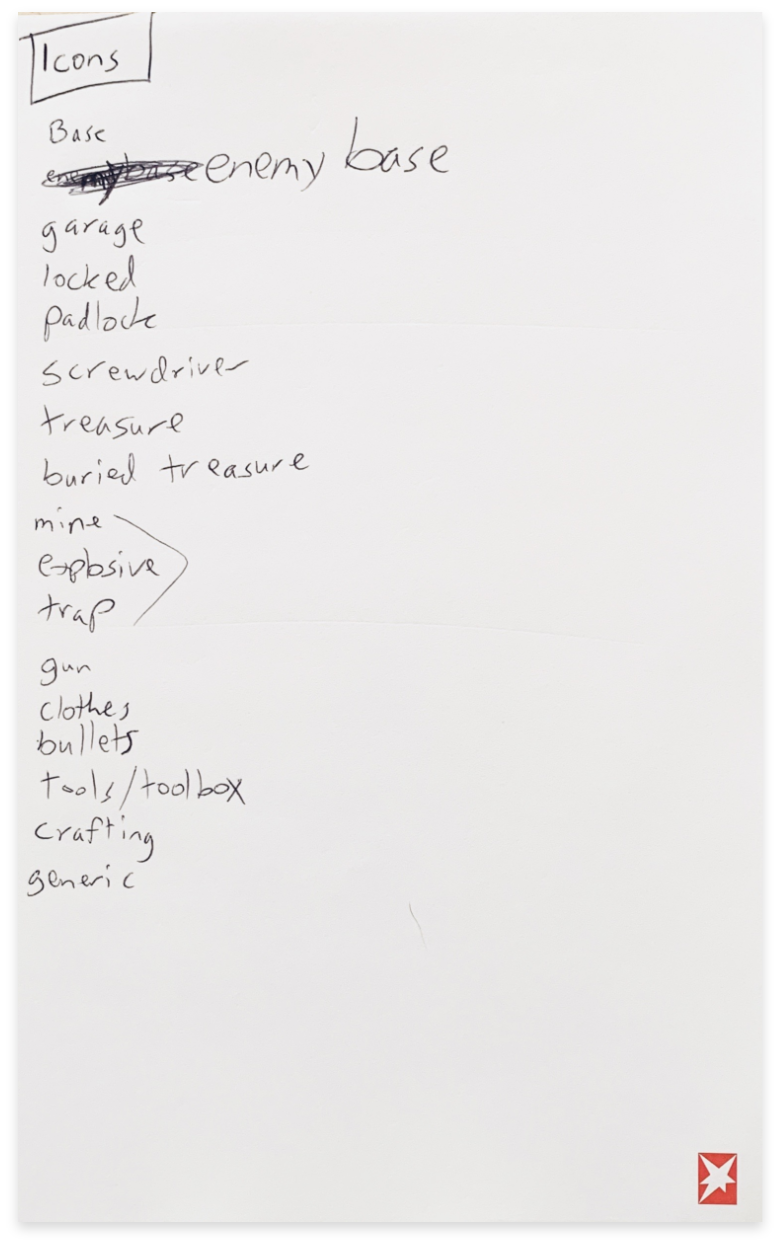 Icons
Base
enemy base enemy base
garage
locked
padlock
screwdriver
treasure
buried treasure
mine
explosive
trap
gun
clothes
bullets
tools/toolbox
crafting
generic